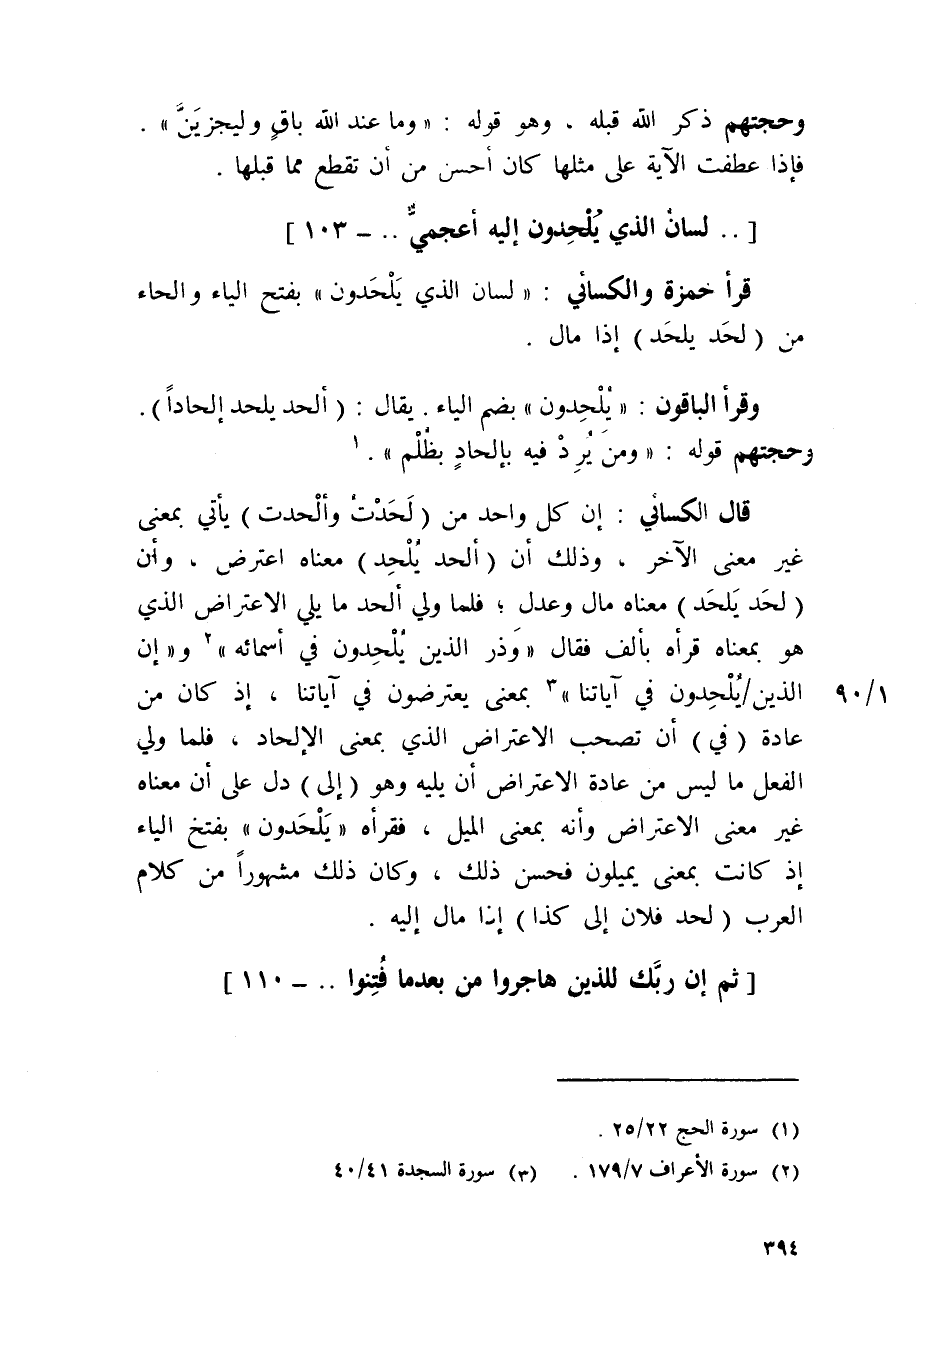 وحجتهم ذكر الله قبله ، وهو قوله : « وما عند الله باقٍ وليجزيَنَّ » .
فإذا عطفت الآية على مثلها كان أحسن من أن تقطع مما قبلها .
[ .. لسانُ الذي يُلْحِدون إليه أعجميٌّ .. ــ ١٠٣ ]
قرأ حمزة والكسائي : « لسان الذي يَلْحَدون » بفتح الياء والحاء
من ( لحَد يلحَد ) إذا مال .
وقرأ الباقون : « يُلْحِدون » بضم الياء . يقال : ( ألحد يلحد إلحاداً ) .
وحجتهم قوله : « ومن يُرِدْ فيه بإلحادٍ بظُلْم » . ١
قال الكسائي : إن كل واحد من ( لَحَدْتُ وألْحدت ) يأتي بمعنى
غير معنى الآخر ، وذلك أن ( ألحد يُلْحِد ) معناه اعترض ، وأن
( لحَد يَلحَد ) معناه مال وعدل ؛ فلما ولي ألحد ما يلي الاعتراض الذي
هو بمعناه قرأه بألف فقال « وَذر الذين يُلْحِدون في أسمائه » ٢ و « إن
الذين/يُلْحِدون في آياتنا » ٣ بمعنى يعترضون في آياتنا ، إذ كان من ٩٠/١
عادة ( في ) أن تصحب الاعتراض الذي بمعنى الإلحاد ، فلما ولي
الفعل ما ليس من عادة الاعتراض أن يليه وهو ( إلى ) دل على أن معناه
غير معنى الاعتراض وأنه بمعنى الميل ، فقرأه « يَلْحَدون » بفتخ الياء
إذ كانت بمعنى يميلون فحسن ذلك ، وكان ذلك مشهوراً من كلام
العرب ( لحد فلان إلى كذا ) إذا مال إليه .
[ ثم إن ربَّك للذين هاجروا من بعدما فُتِنوا .. ــ ١١٠ ]
(١) سورة الحج ٢٥/٢٢ .
(٢) سورة الأعراف ١٧٩/٧ . (٣) سورة السجدة ٤٠/٤١
٣٩٤